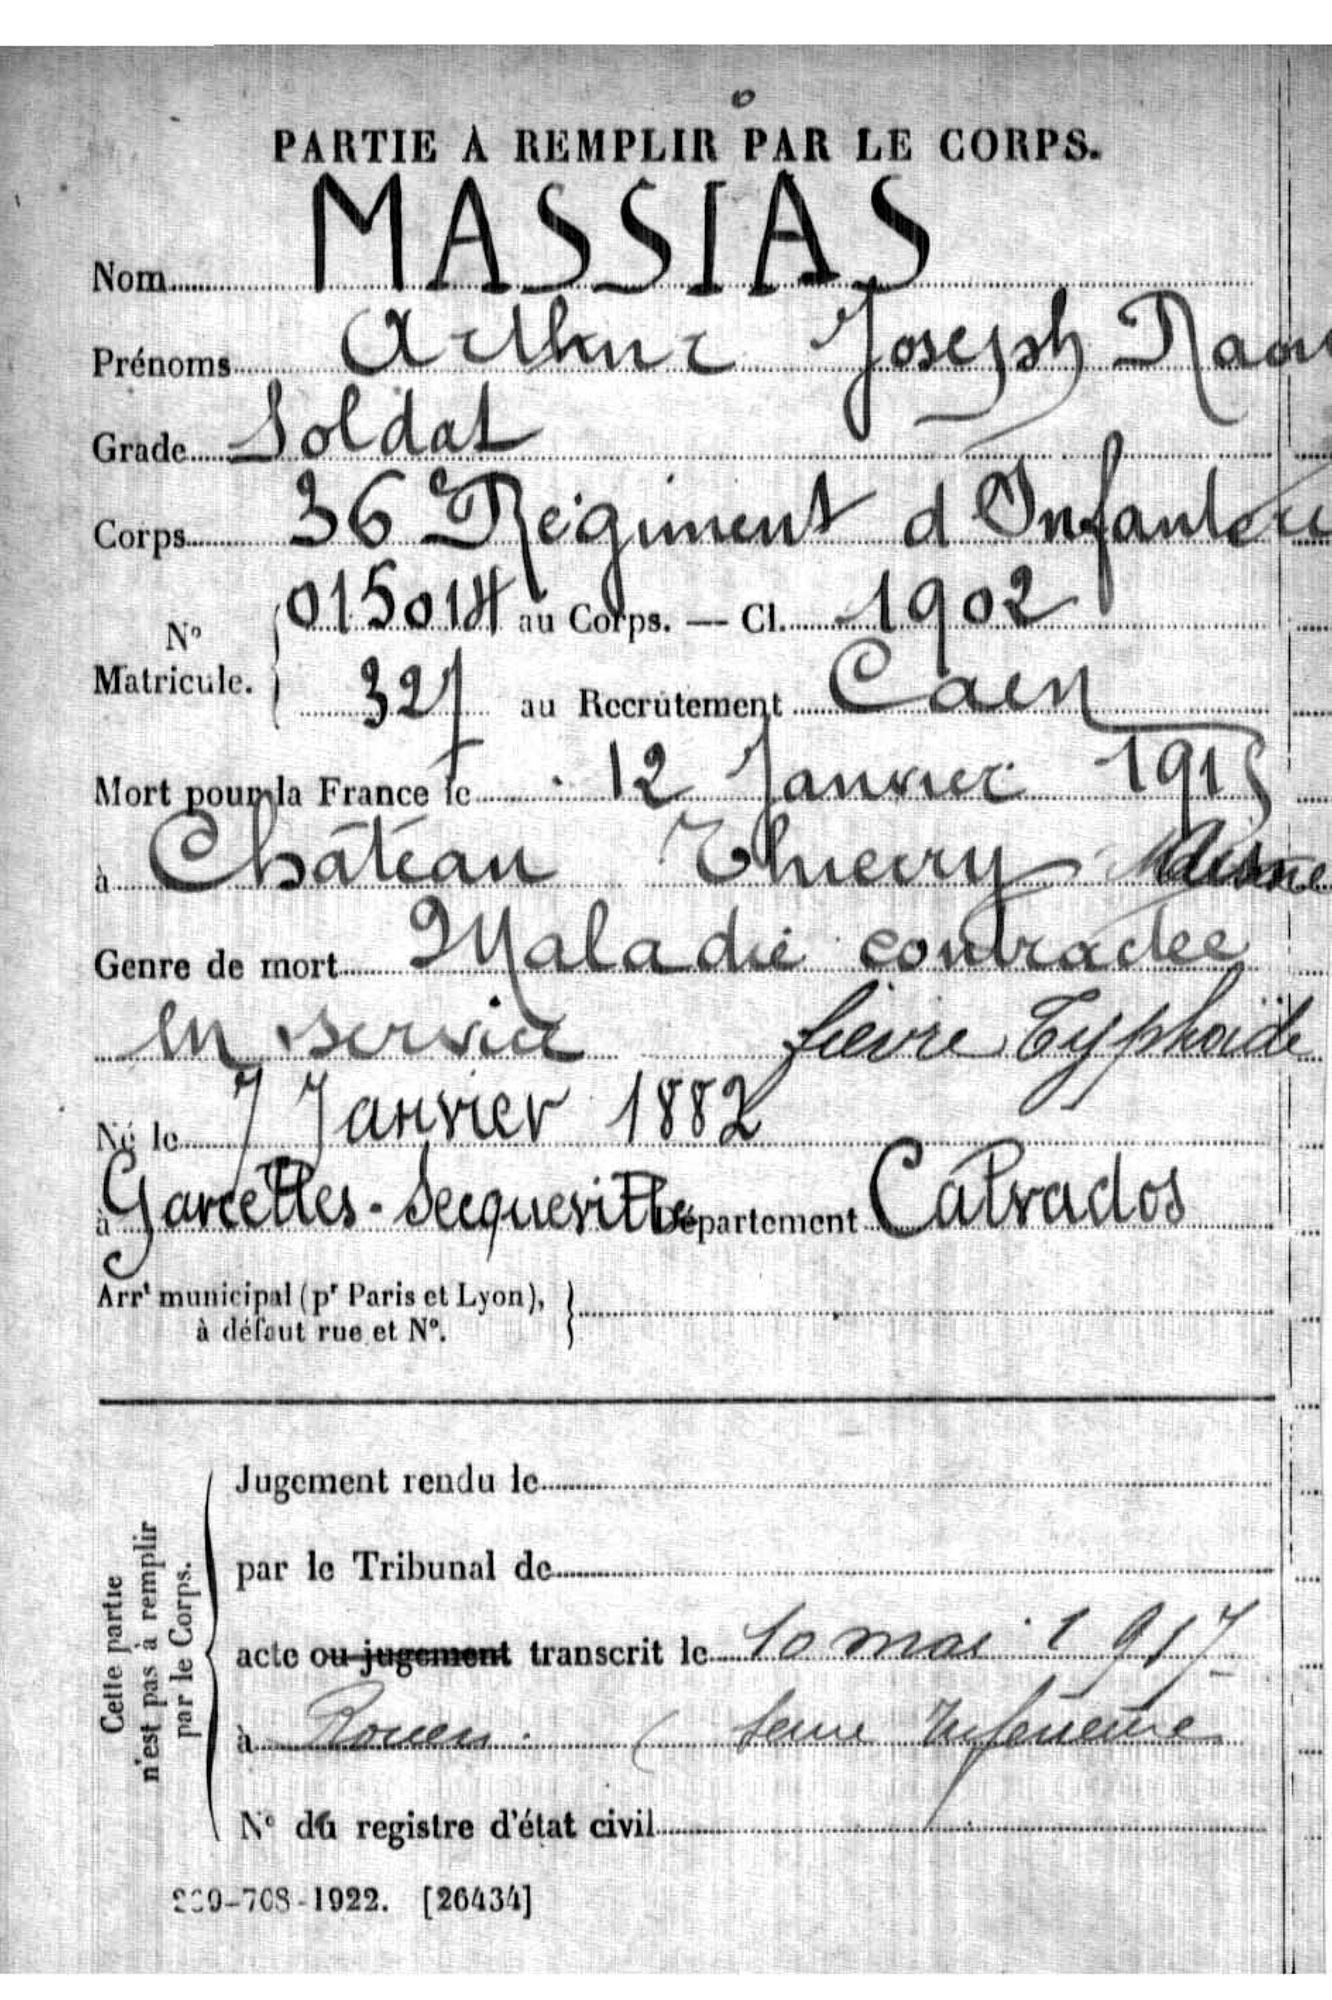 PARTIE À REMPLIR PAR LE CORPS.
Nom MASSIAS
Prénoms Arthur Joseph Raou
Grade Soldat
Corps 36 Régiment d Infanterie
No 015014 au Corps. — Cl. 1902
Matricule. 327 au Recrutement Caen
Mort pour la France le 12 Janvier 1915
à Château Thierry Aisne
Genre de mort Maladie contractee
en service fièvre Typhoïde
Né le 7 Janvier 1882
à Garcelles-Secqueville Département Calvados
Arrt municipal (pr Paris et Lyon),
à défaut rue et No.
Cette partie
n'est pas à remplir
par le Corps.
Jugement rendu le
par le Tribunal de
acte ou jugement transcrit le 10 mai 1917
à Rouen. (Seine Inférieure
No du registre d'état civil
-708-1922. [26434]